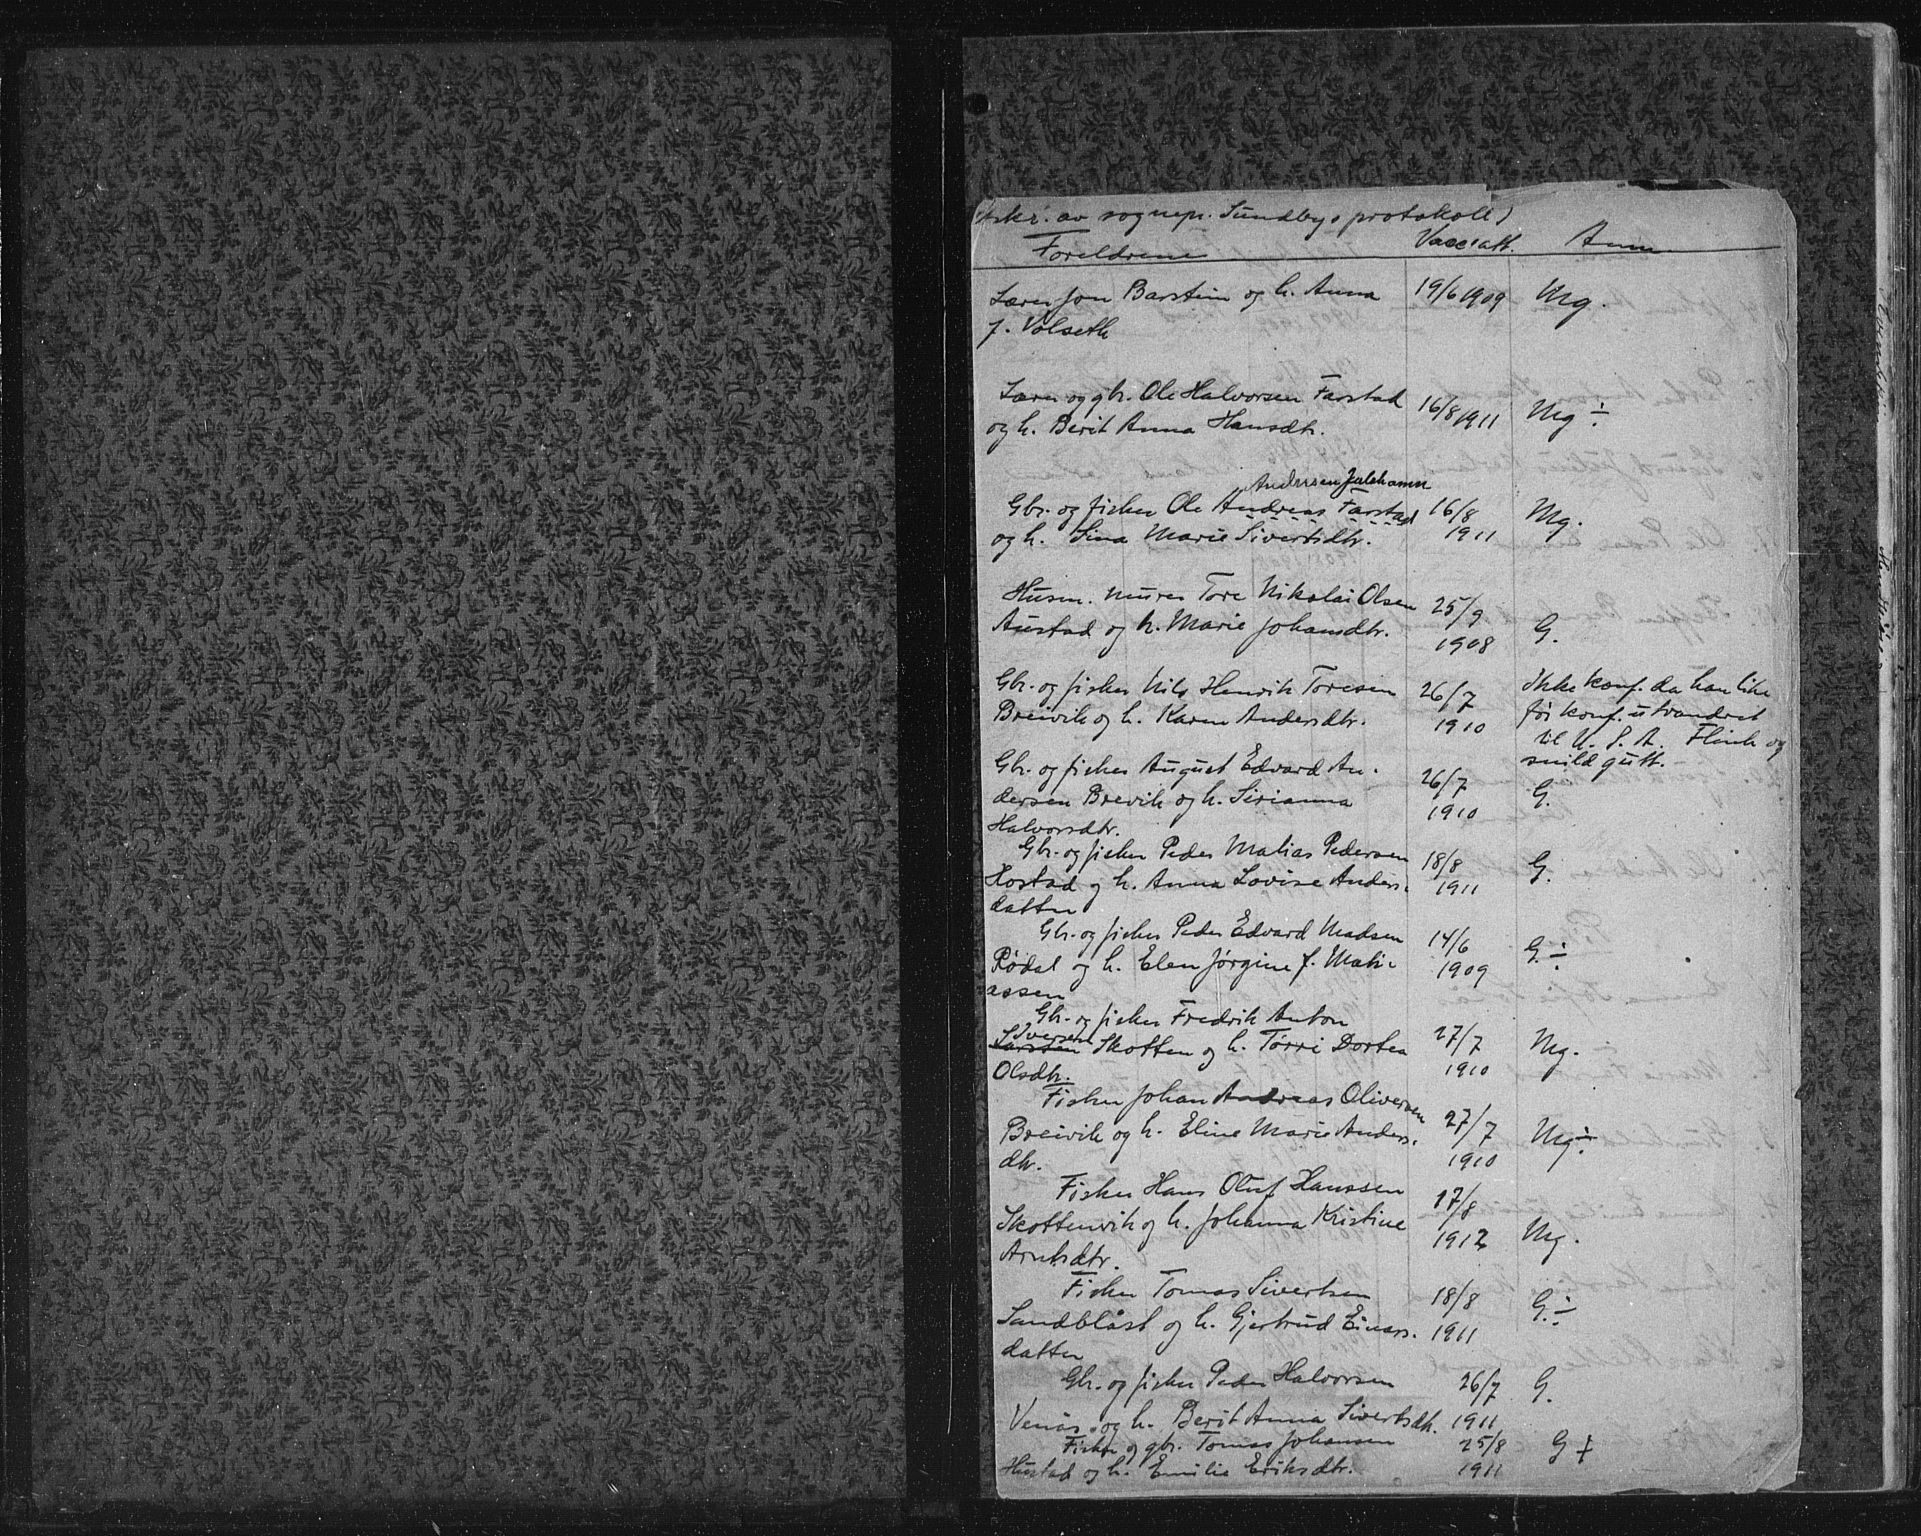 avskr. av sognepr. Sundbys protokoll)
Foreldrene Vacc.att. Anm.
Lærer Jon Barstein og h. Anna 19/6 1909 Mg.
f. Volseth
Lærer og gbr. Ole Halvorsen Farstad 16/8 1911 Mg ÷
og h. Berit Anna Hansdtr.
Andersen Julshamn
Gbr. og fisker Ole Andreas Farstad 16/8 Mg.
og h. Sina Marie Sivertsdtr. 1911
Husm. murer Tore Nikolai Olsen 25/9
Austad og h. Marie Johansdtr. 1908 G.
Gbr. og fisker Nils Henrik Toresen 26/7 Ikke konf. da han like
Breivik og h. Karen Andersdtr. 1910 før konf. utvandret
til U. S. A. Flink og
snild gutt.
Gbr. og fisker August Edvard An- 26/7 G.
dersen Brevik og h. Sirianna 1910
Halvorsdtr.
Gbr. og fisker Peder Matias Pedersen 18/8 G.
Hostad og h. Anna Lovise Anders- 1911
datter
Gbr. og fisker Peder Edvard Madsen 14/6 G. ÷
Rødal og h. Elen Jørgine f. Mati- 1909
assen
Gbr. og fisker Fredrik Anton 27/7 Mg.
Iversen
Larsen Skotten og h. Tørri Dortea 1910
Olsdtr.
Fisker Johan Andreas Oliversen 27/7
Breivik og h. Eline Marie Anders- 1910 Mg ÷
dtr.
Fisker Hans Oluf Hanssen 17/8
Skottenvik og h. Johanna Kristine 1912 Mg.
Arntsdtr.
Fisker Tomas Sivertsen 18/8 G. ÷
Sandblåst og h. Gjertrud Einars- 1911
datter
Gbr. og fisker Peder Halvorsen 26/7 G.
Venås og h. Berit Anna Sivertsdtr. 1911
Fisker og gbr. Tomas Johansen 25/8 G ÷
Hustad og h. Emilie Eriksdtr. 1911